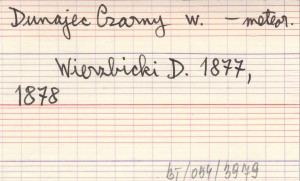 Dunajec Czarny w. - meteor.
Wierzbicki D. 1877,
1878
BT/054/3979